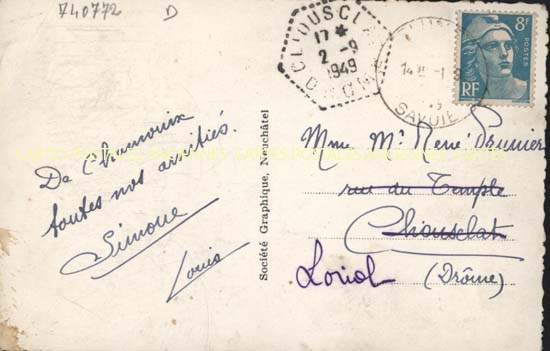 740772 D
17 *
2 - 9
1949
DROME
SAVOIE
8F
POSTES
RF
De Chamonix
toutes nos amitiés.
Simone
Louis
Société Graphique, Neuchâtel
Mme Mr René Prunier
rue du Temple
Chousclat
Loriol (Drôme)